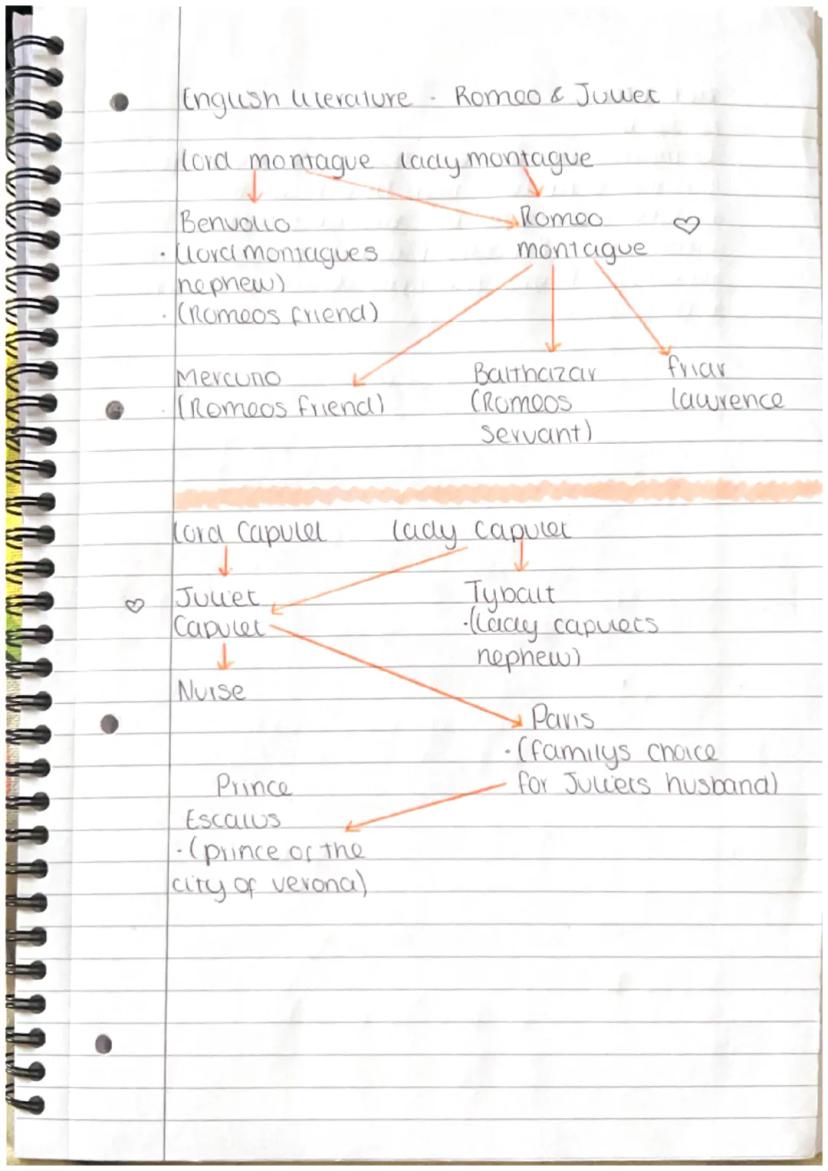 English literature - Romeo & Juliet
lord montague lady montague
Benvolio Romeo ♡
· (lord montagues montague
nephew)
· (Romeos friend)
Mercutio Balthazar friar
(Romeos friend) (Romeos lawrence
servant)
lord Capulet lady Capulet
♡ Juliet Tybalt
Capulet · (lady capulets
nephew)
Nurse
Paris
· (familys choice
Prince for Juliets husband)
Escalus
· (prince of the
city of verona)